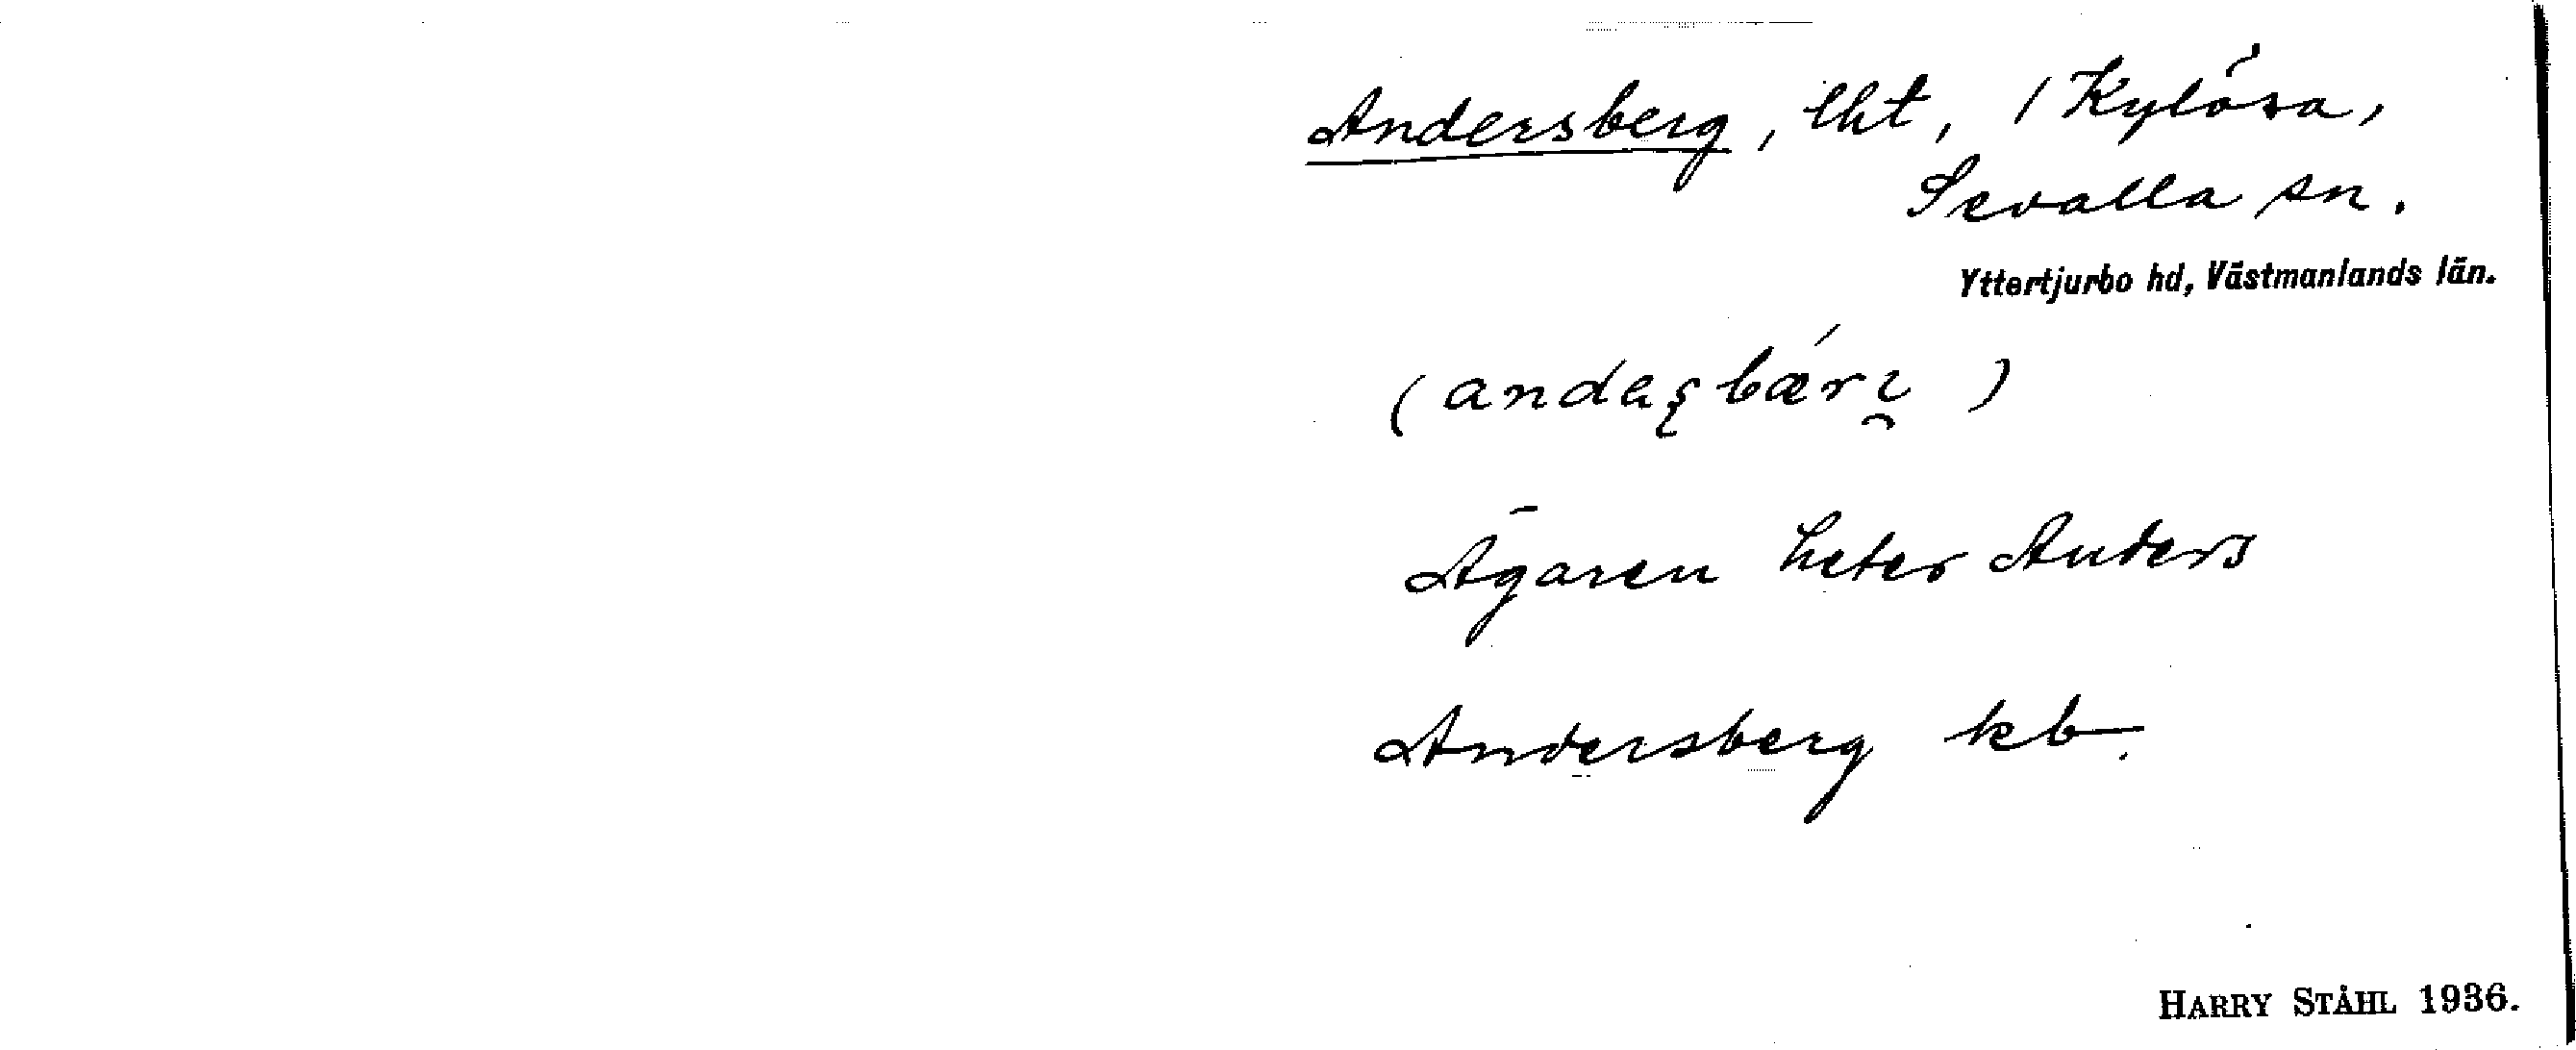 Andersberg, lht, / Kylösa,
Sevalla sn.
Yttertjurbo hd, Västmanlands län.
(andaʂbæŕi̯)
Ägaren heter Anders
Andersberg kb.
HARRY STÅHL 1936.